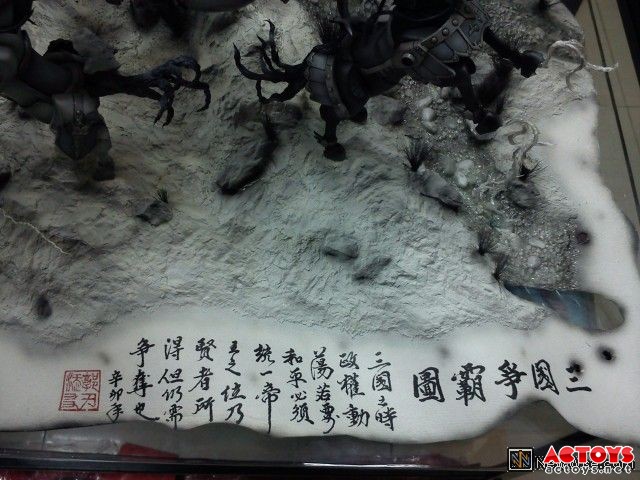 三國爭霸圖
三國之時
政權動
蕩若要
和平必須
統一帝
王之位乃
賢者所
得但仍需
爭奪也
辛卯年
ACTOYS
actoys.net